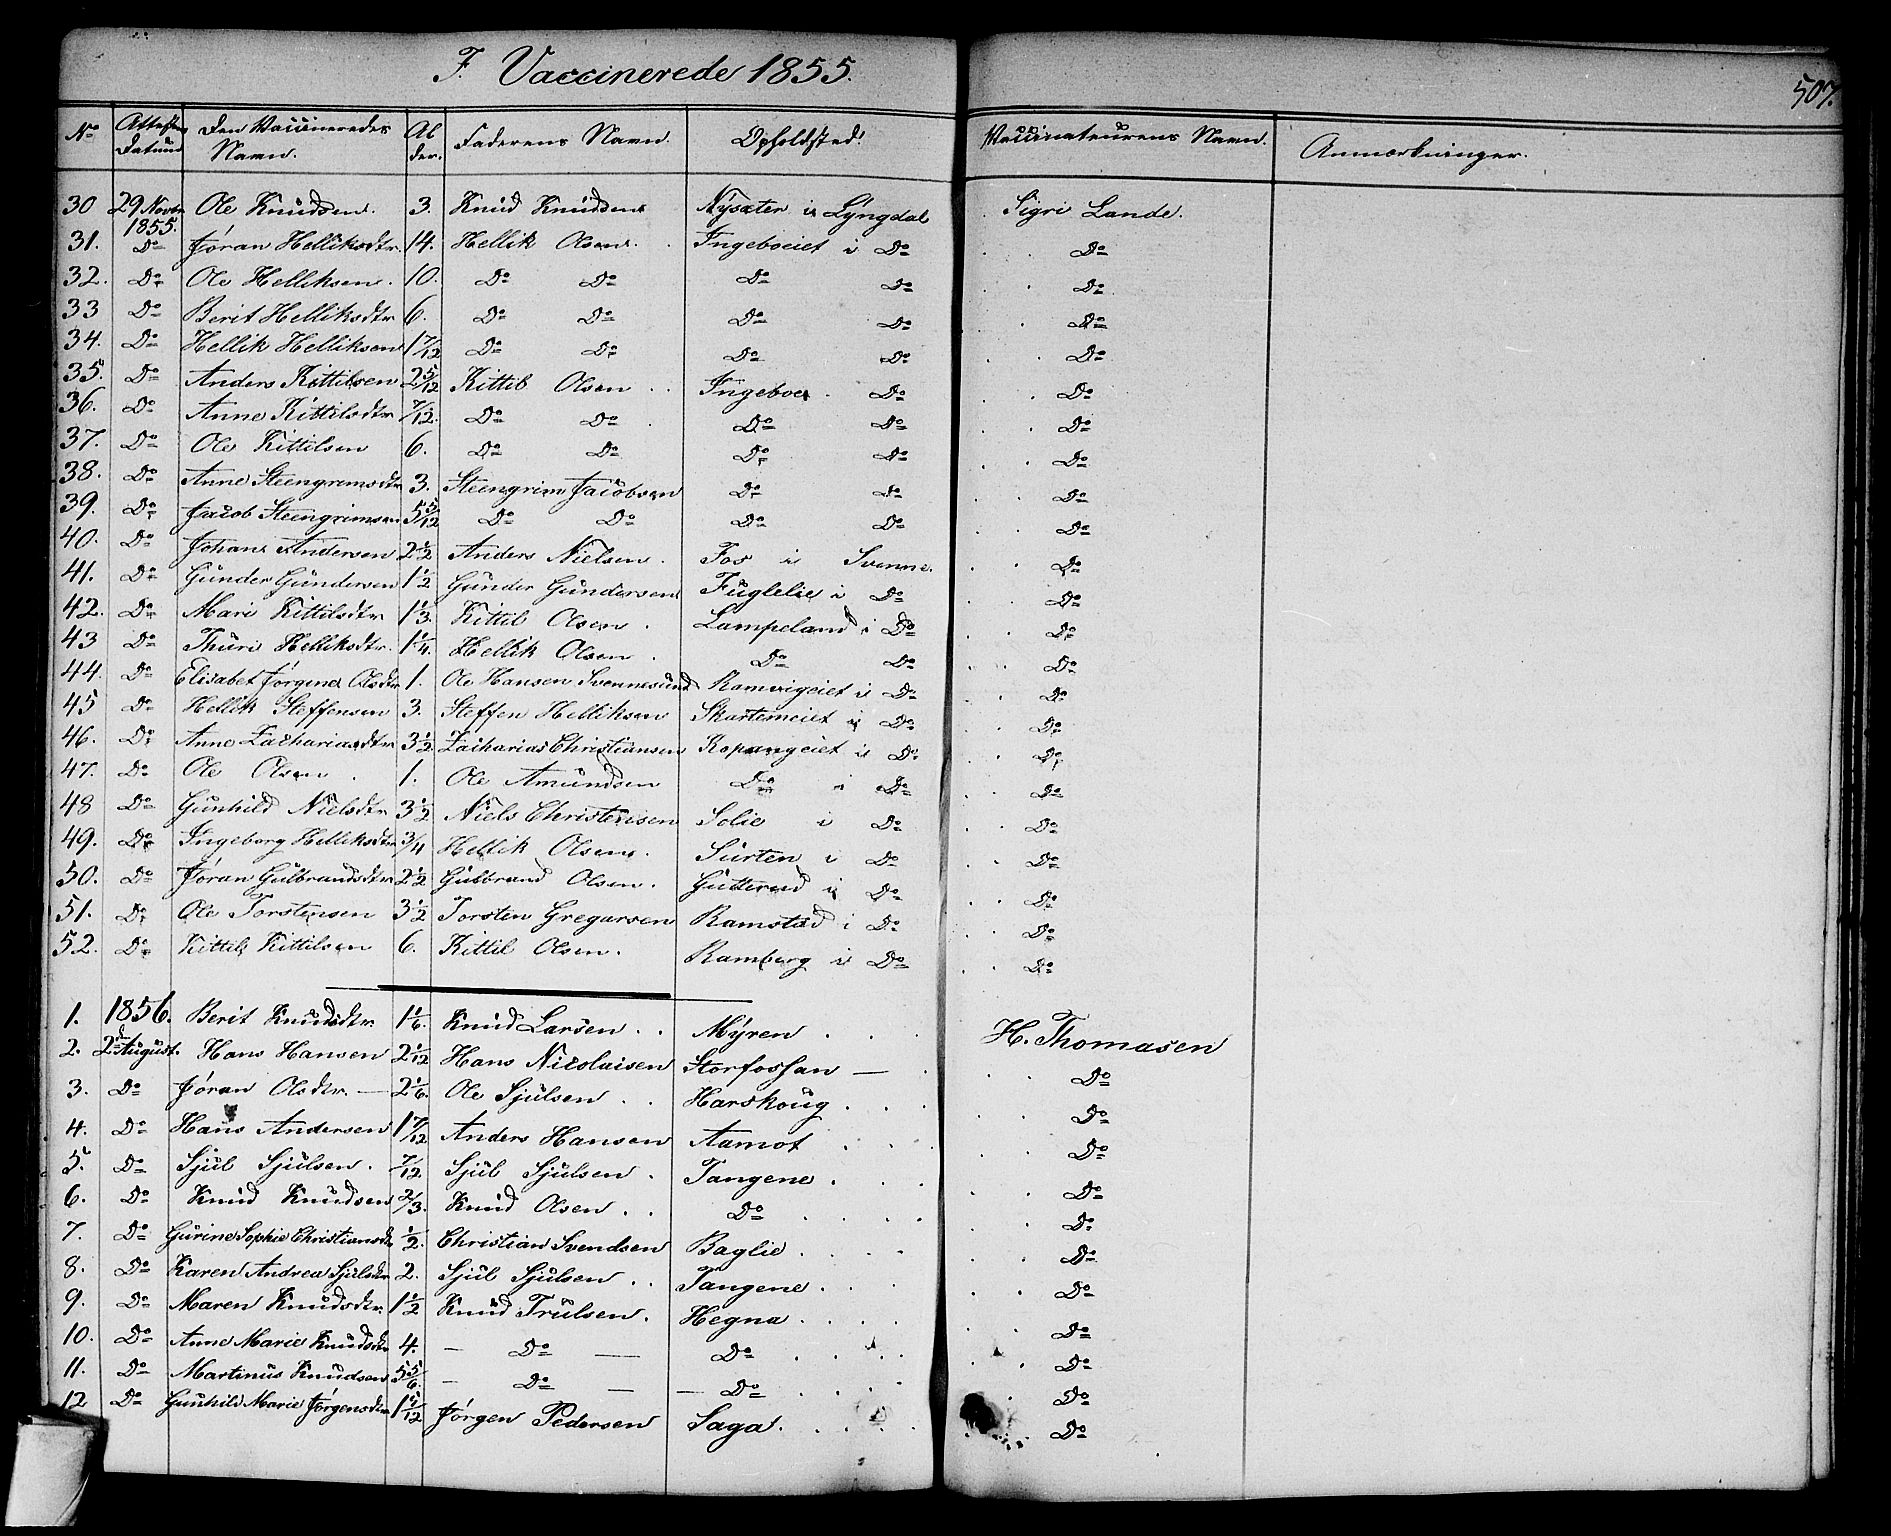 F. Vaccinerede 1855.
507.
No Attestens Datum Den Vaccineredes Navn. Alder. Faderens Navn. Opholdsted. Vaccinateurens Navn. Anmærkninger.
30 29 Novbr 1855. Ole Knudsen. 3. Knud Knudsen Nysæter i Lyngdal Sigri Lande.
31. Do Jøran Helliksdtr. 14. Hellik Olsen. Ingeboeiet i Do Do
32. Do Ole Helliksen. 10. Do Do Do Do Do
33 Do Berit Helliksdtr 6. Do Do Do Do Do
34. Do Hellik Helliksen 1 7/12 Do Do Do Do Do
35. Do Anders Kittilsen 2 5/12 Kittil Olsen Ingeboe Do Do
36. Do Anne Kittilsdtr 7/12. Do Do Do Do Do
37. Do Ole Kittilsen 6. Do Do Do Do Do
38. Do Anne Steengrimsdtr 3. Steengrim Jacobsen Do Do Do
39. Do Jacob Steengrimsen 5 5/12 Do Do Do Do Do
40. Do Johans Andersen 2 1/2 Anders Nielsen. Fos i Svenne. Do
41. Do Günder Gündersen 1 1/2 Günder Gündersen Fuglelie i Do Do
42. Do Mari Kittilsdtr 1 1/3. Kittil Olsen. Lampeland i Do Do
43 Do Thuri Helliksdtr. 1 1/4. Hellik Olsen. Do Do Do
44. Do Elisabet Jørgine Olsdtr 1. Ole Hansen Svennesund Ramvigeiet i Do Do
45 Do Hellik Steffensen 3. Steffen Helliksen Skartemeiet i Do Do
46. Do Anne Zachariasdtr 3 1/2 Zacharias Christiansen Kopangeiet i Do Do
47. Do Ole Olsen. 1. Ole Amundsen Do i Do Do
48 Do Gunhild Nielsdtr 3 1/2 Niels Christensen Solie i Do Do
49. Do Ingeborg Helliksdtr 3/4 Hellik Olsen. Surten i Do Do
50. Do Jøran Gulbrandsdtr 2 1/2 Gulbrand Olsen. Gutterud i Do Do
51. Do Ole Torstensen 3 1/2 Torsten Gregarsen Ramstad i Do Do
52. Do Kittil Kittilsen 6. Kittil Olsen. Ramberg i Do Do
1. 1856. Berit Knudsdtr 1 1/6. Knud Larsen Myren H. Thomasen
2. 2d August. Hans Hansen 2 1/12 Hans Nicolaisen Storfossan — Do
3. Do Jøran Olsdtr. — 2 1/6. Ole Sjulsen Harskoug Do
4. Do Hans Andersen 1 7/12 Anders Hansen Aamot Do
5. Do Sjul Sjulsen. 7/12. Sjul Sjulsen. Tangene Do
6. Do Knud Knudsen 2/3. Knud Olsen Do Do
7. Do Gurine Sophie Christiansdtr 1/2. Christian Svendsen Baglie Do
8. Do Karen Andrea Sjulsdtr 2. Sjul Sjulsen Tangene Do
9. Do Maren Knudsdtr. 1 1/2 Knud Trulsen. Hegna Do
10. Do Anne Marie Knudsdtr 4. — Do — Do Do
11. Do Martinus Knudsen 5 5/6. — Do — — Do Do
12 Do Gunhild Marie Jørgensdtr 1 5/12 Jørgen Pedersen Saga. Do